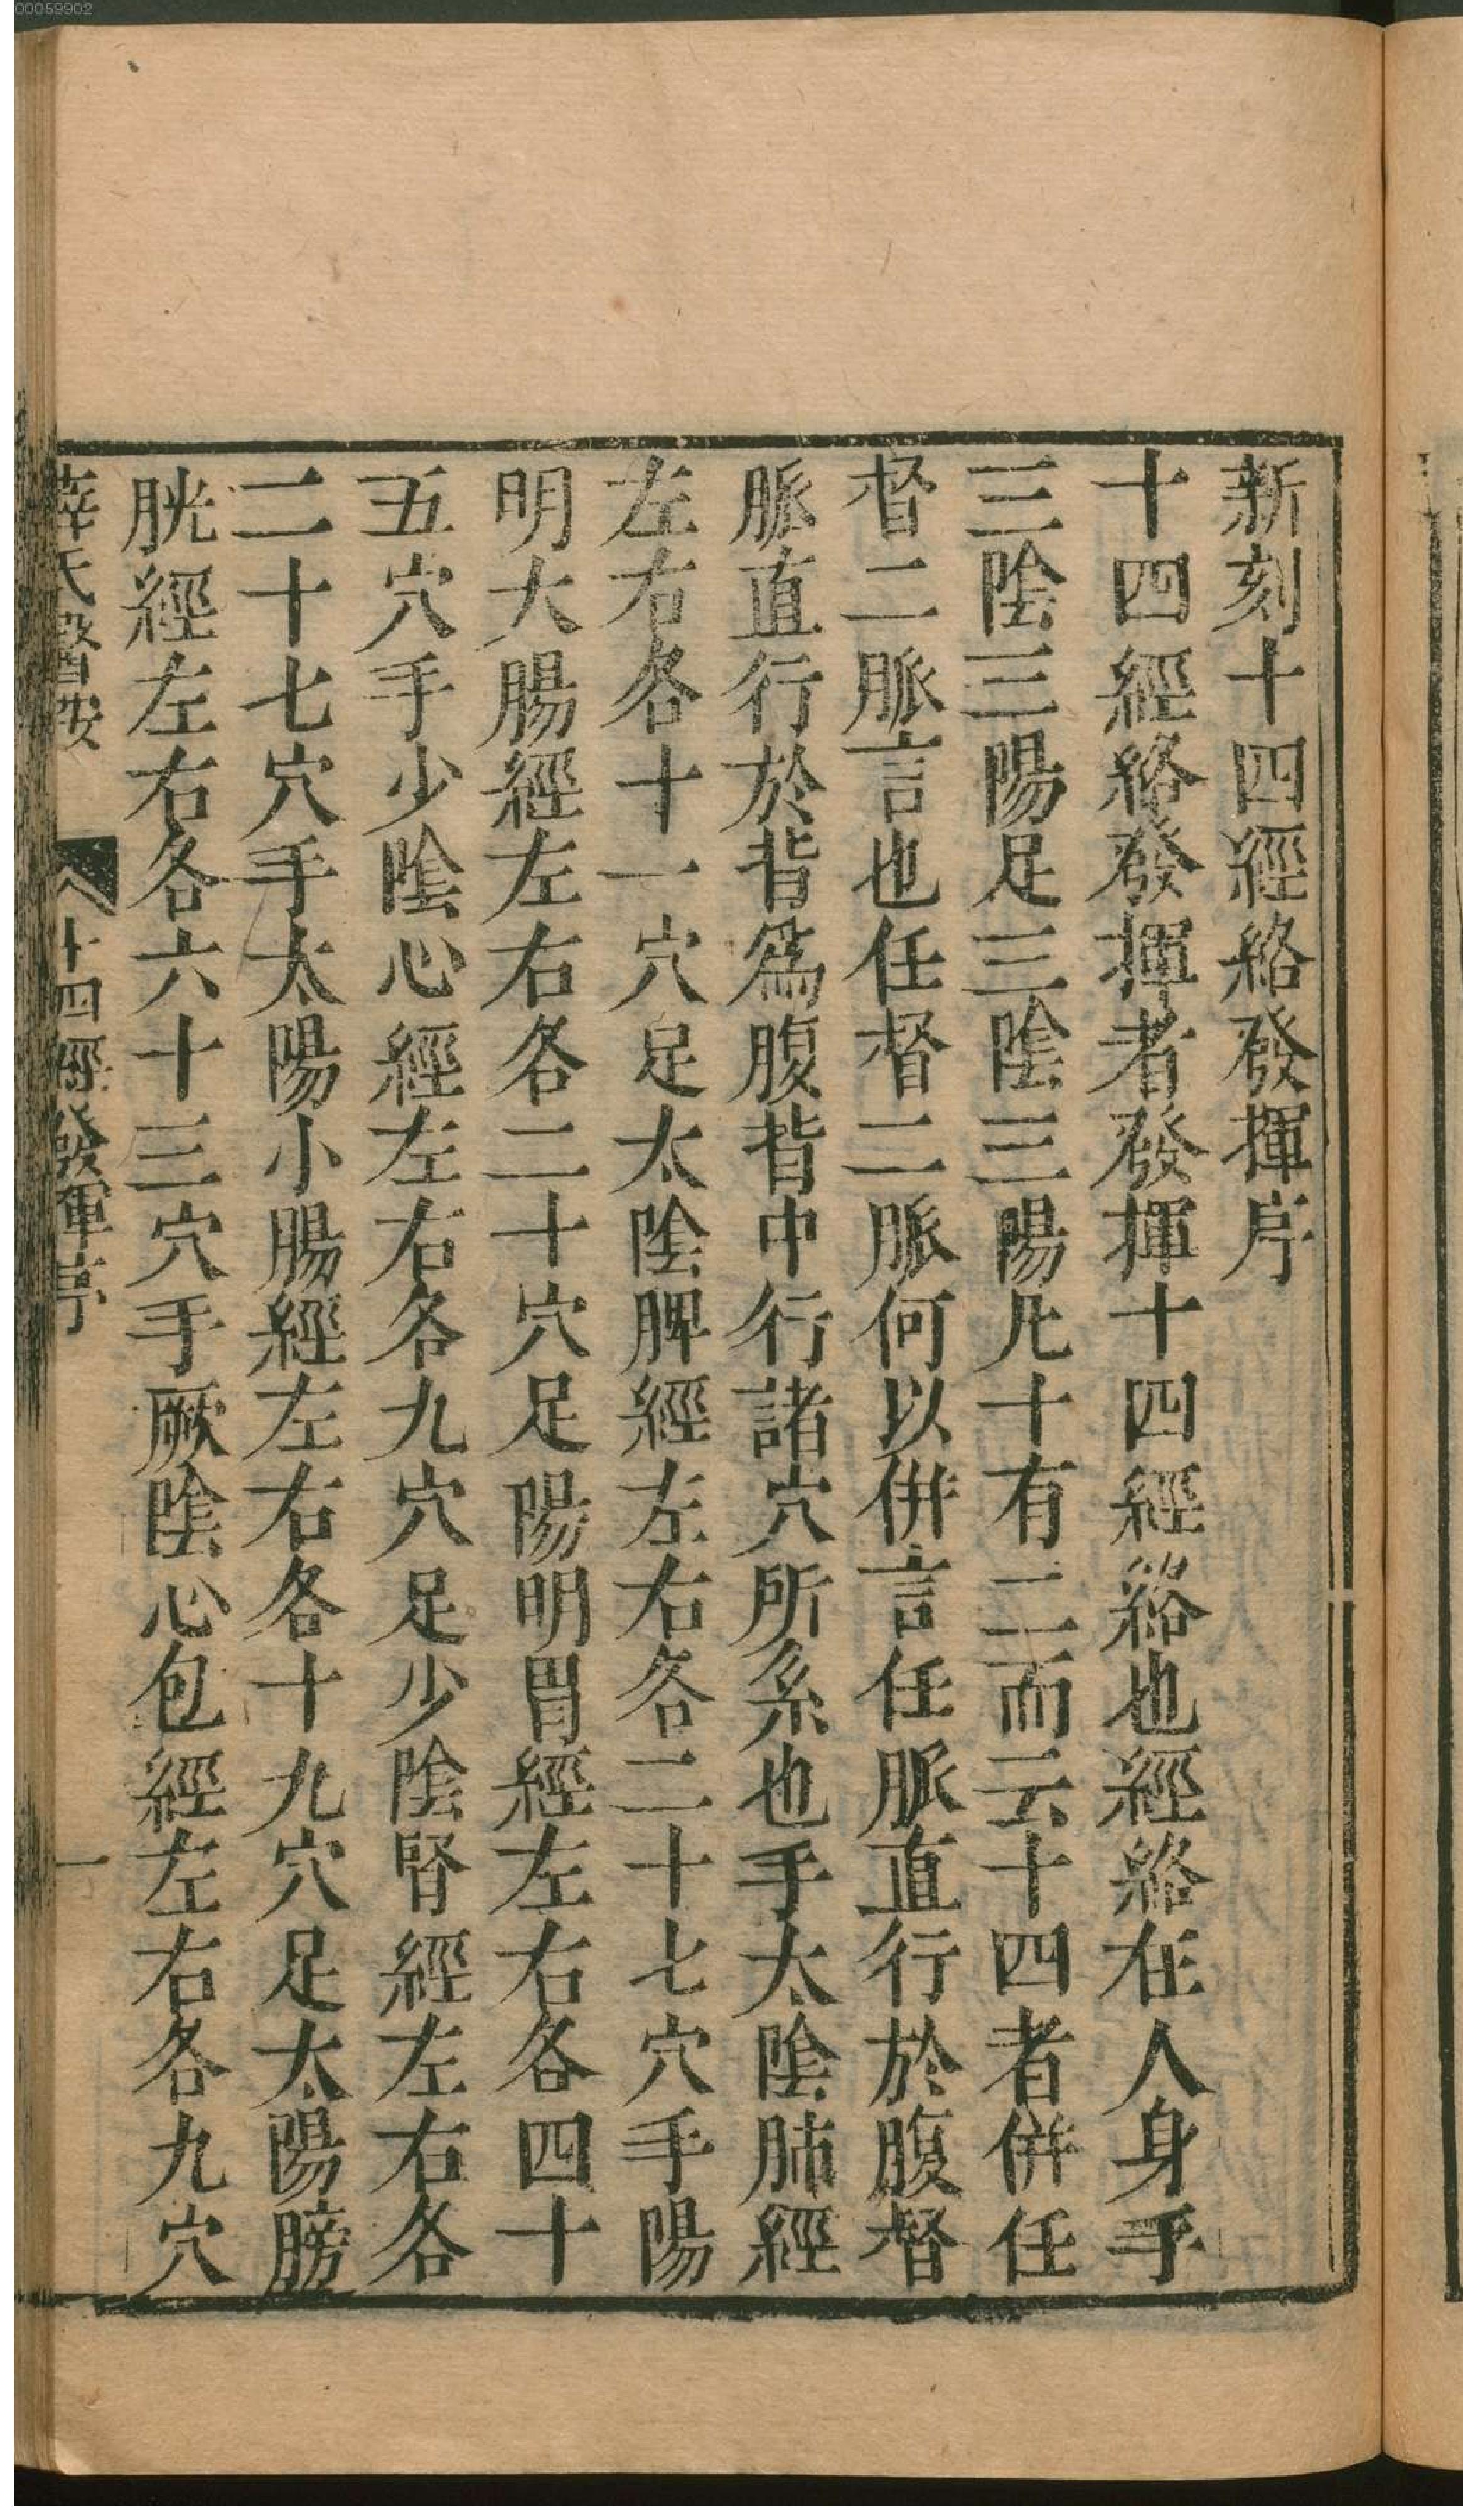 00059902
新刻十四經絡發揮序
十四經絡發揮者發揮十四經絡也經絡在人身手
三陰三陽足三陰三陽凡十有二而云十四者併任
督二脈言也任督二脈何以併言任脈直行於腹督
脈直行於背爲腹背中行諸穴所系也手太陰肺經
左右各十一穴足太陰脾經左右各二十七穴手陽
明大腸經左右各二十穴足陽明胃經左右各四十
五穴手少陰心經左右各九穴足少陰腎經左右各
二十七穴手太陽小腸經左右各十九穴足太陽膀
胱經左右各六十三穴手厥陰心包經左右各九穴
薛氏醫按 十四經發揮序 一